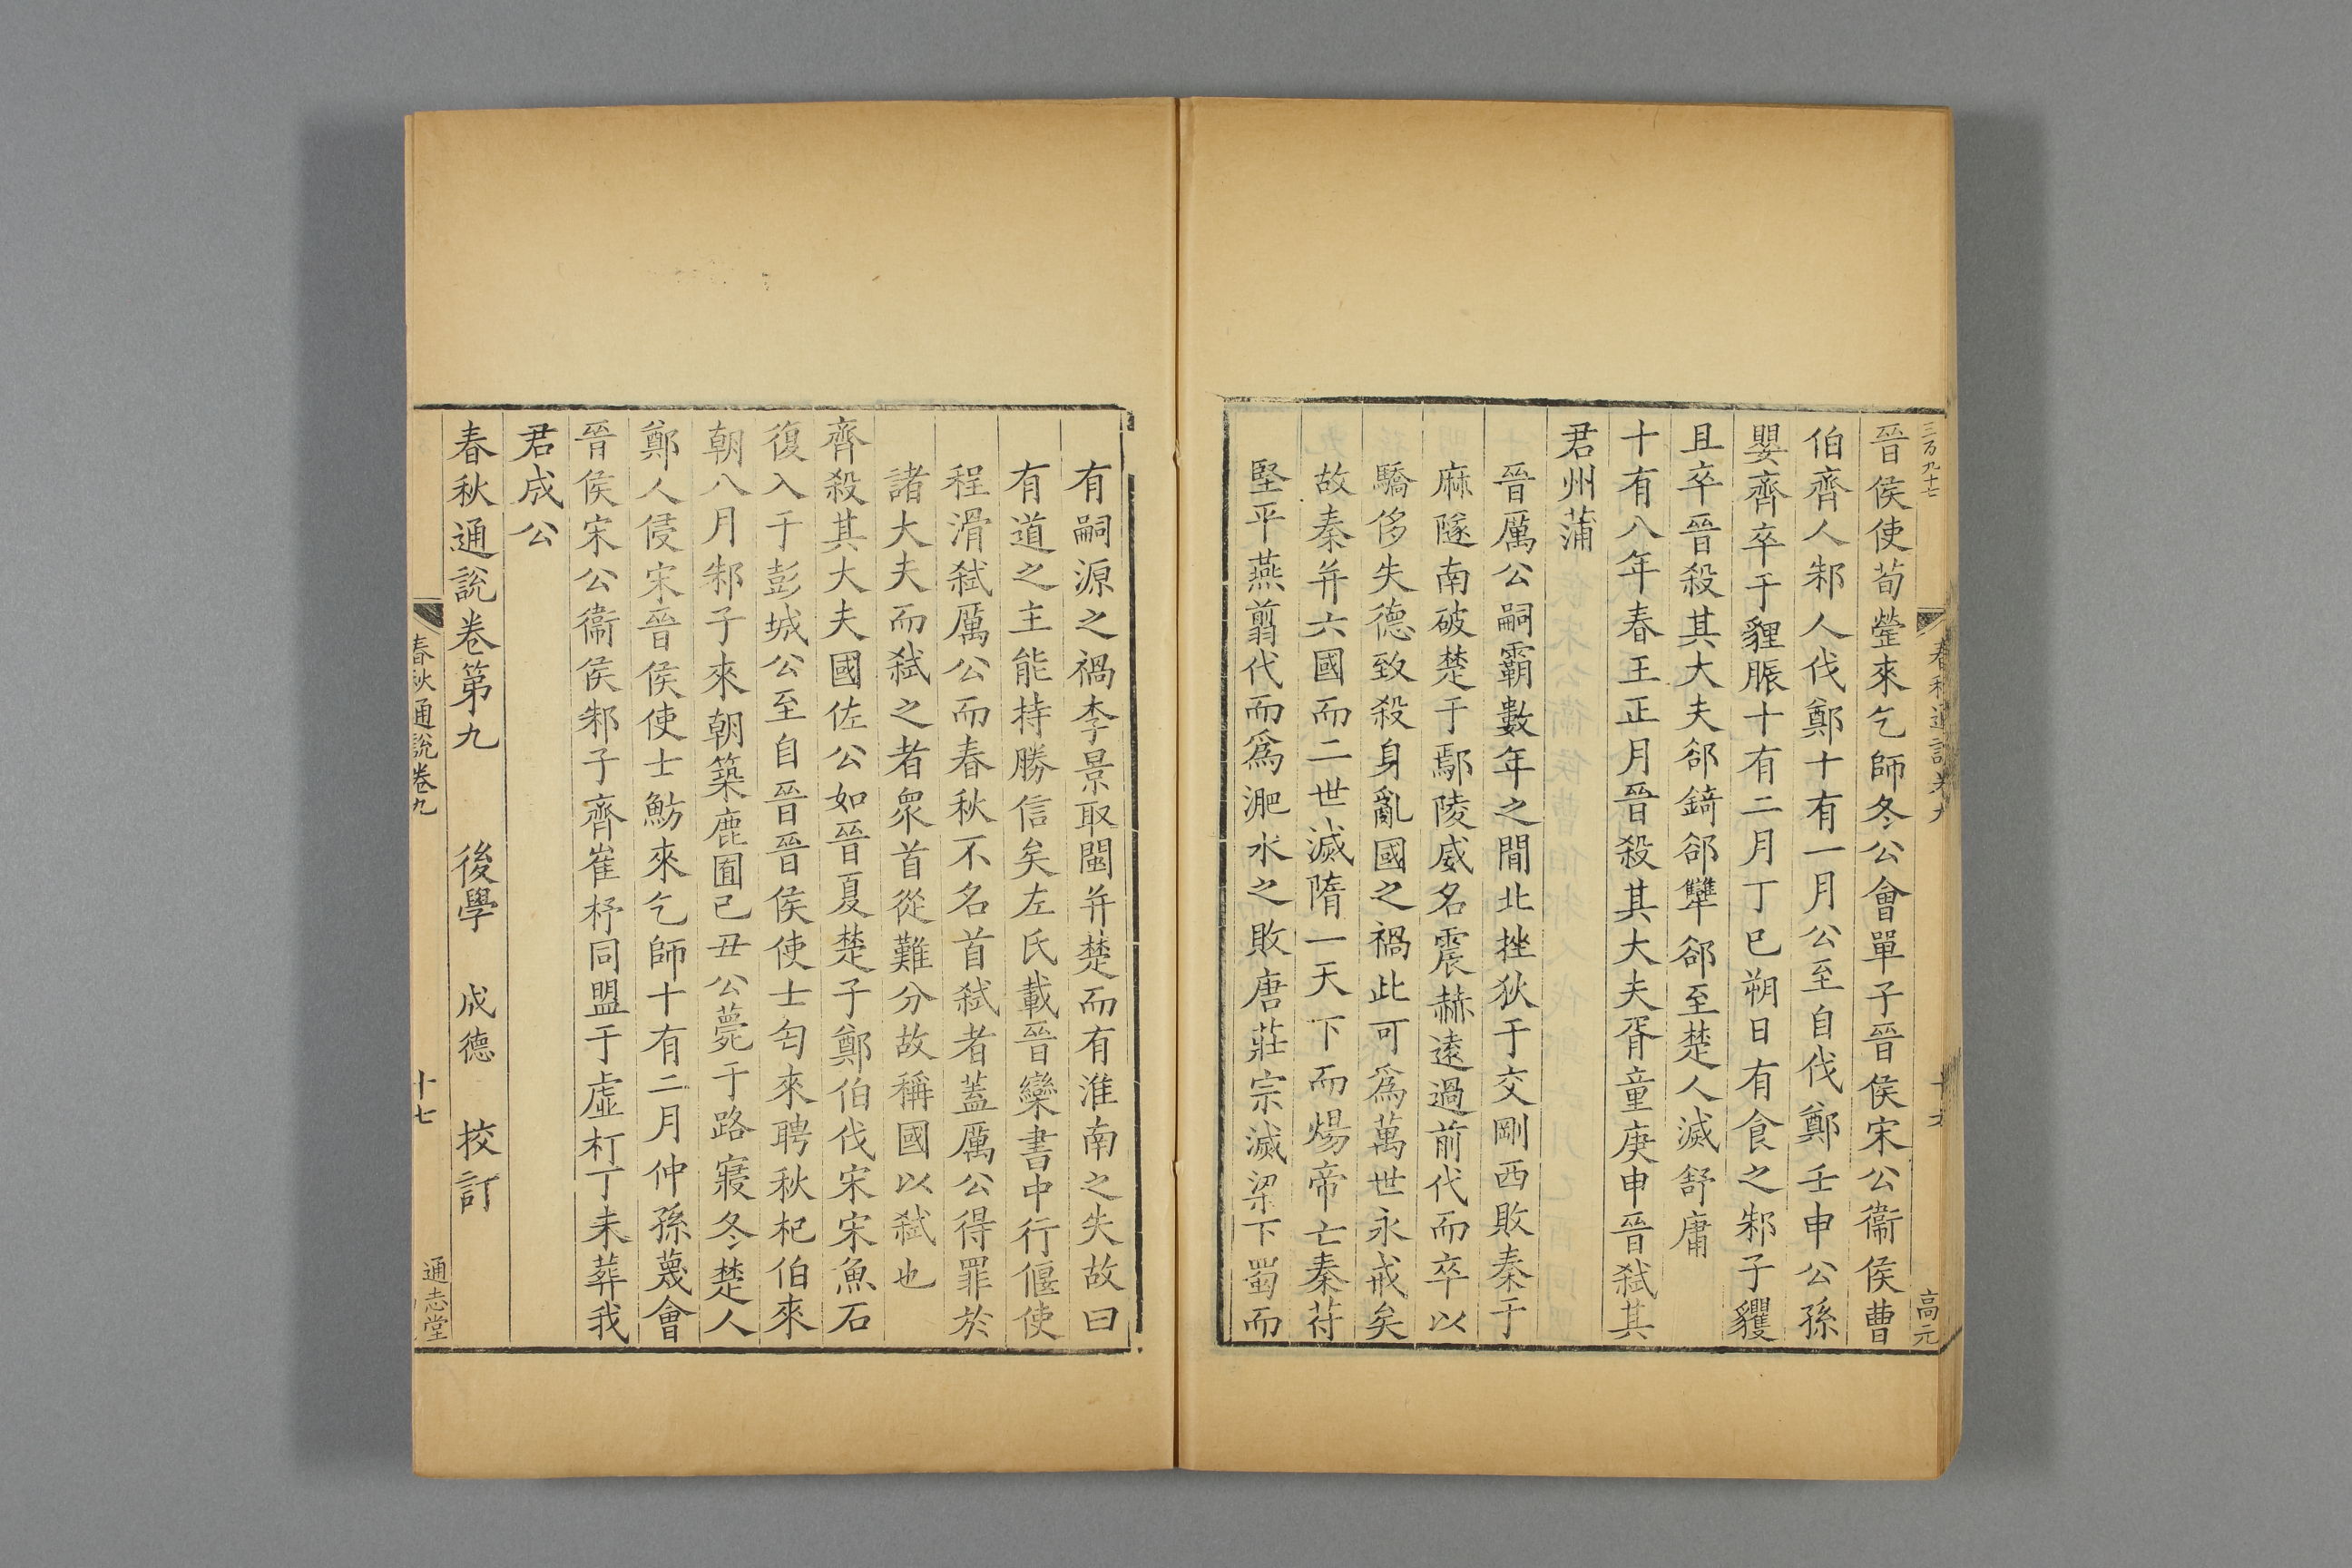 三百九十七
春秋通說卷九
高元
晉侯使荀罃來乞師冬公會單子晉侯宋公衞侯曹
伯齊人邾人伐鄭十有一月公至自伐鄭壬申公孫
嬰齊卒于貍脤十有二月丁巳朔日有食之邾子貜
且卒晉殺其大夫郤錡郤犨郤至楚人滅舒庸
十有八年春王正月晉殺其大夫胥童庚申晉弑其
君州蒲
晉厲公嗣霸數年之間北挫狄于交剛西敗秦于
麻隧南破楚于鄢陵威名震赫遠過前代而卒以
驕侈失德致殺身亂國之禍此可爲萬世永戒矣
故秦并六國而二世滅隋一天下而煬帝亡秦苻
堅平燕翦代而爲淝水之敗唐莊宗滅梁下蜀而
有嗣源之禍李景取閩并楚而有淮南之失故曰
有道之主能持勝信矣左氏載晉欒書中行偃使
程滑弑厲公而春秋不名首弑者蓋厲公得罪於
諸大夫而弑之者衆首從難分故稱國以弑也
齊殺其大夫國佐公如晉夏楚子鄭伯伐宋宋魚石
復入于彭城公至自晉晉侯使士匄來聘秋杞伯來
朝八月邾子來朝築鹿囿己丑公薨于路寢冬楚人
鄭人侵宋晉侯使士魴來乞師十有二月仲孫蔑會
晉侯宋公衞侯邾子齊崔杼同盟于虛朾丁未葬我
君成公
春秋通說卷第九 後學 成德 挍訂
春秋通說卷九
十七
通志堂